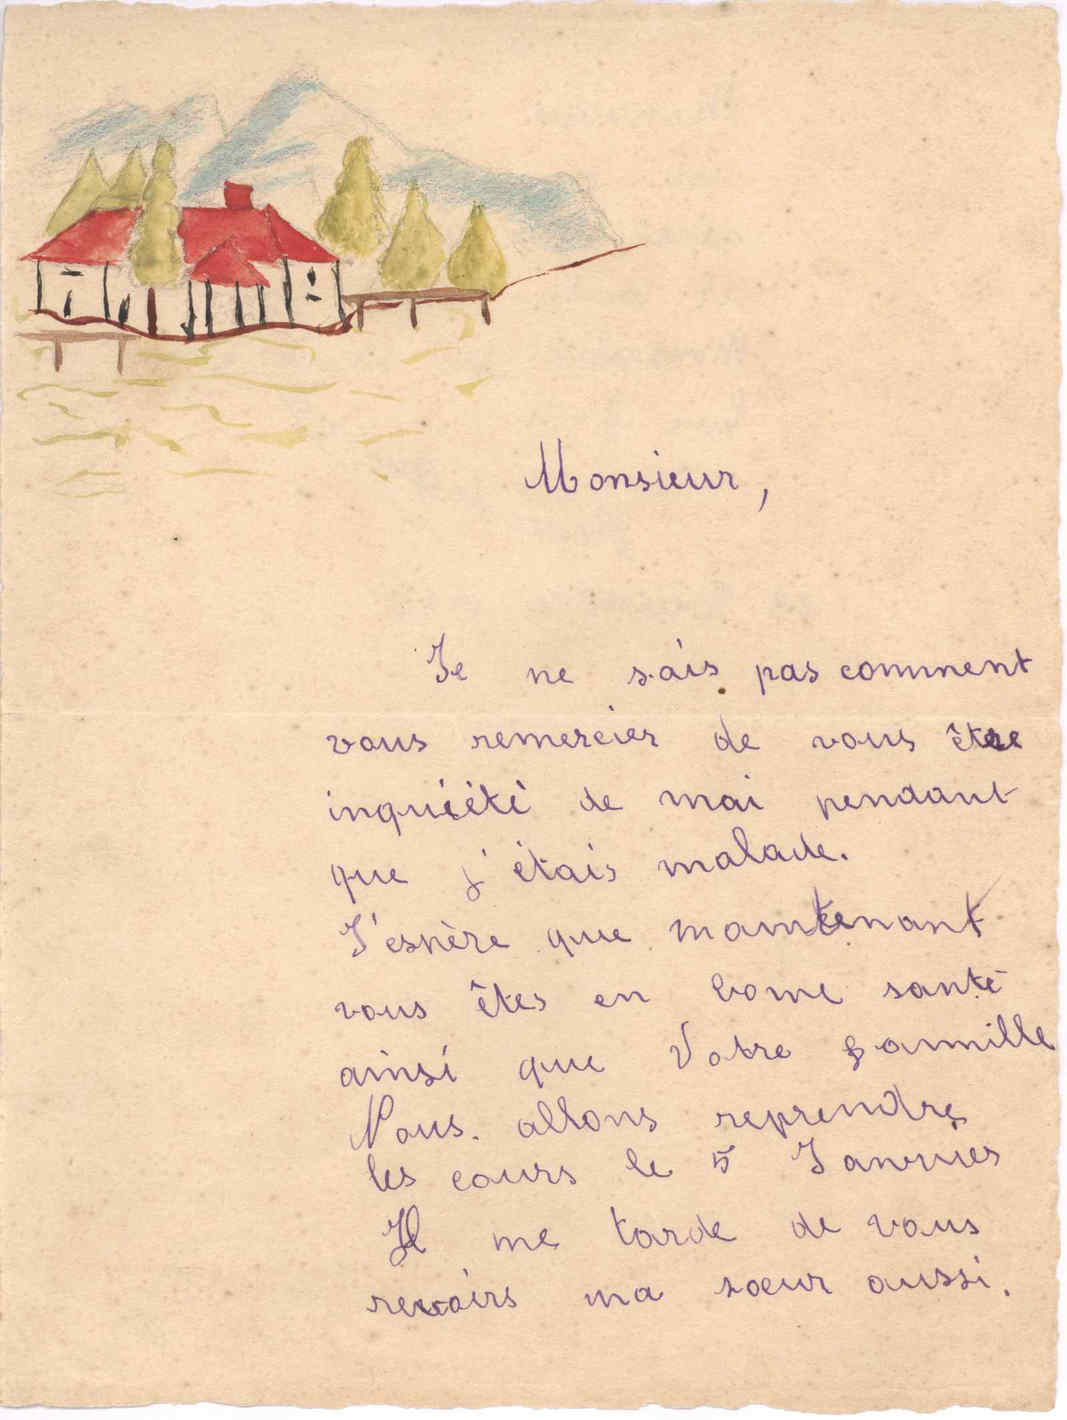 Monsieur,
Je ne sais pas comment
vous remercier de vous être
inquiété de moi pendant
que j'étais malade.
J'espère que maintenant
vous êtes en bonne santé
ainsi que Votre famille
Nous allons reprendre
les cours le 5 Janvier
Il me tarde de vous
revoirs ma soeur aussi.